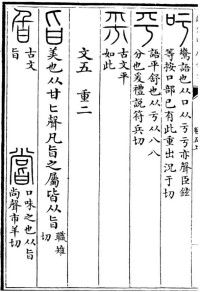 吁 驚語也从口从亏亏亦聲臣鉉
等按口部已有此重出況于切
平 語平舒也从亏从八八
分也爰禮說符兵切
古文平
如此
文五 重二
旨 美也从甘匕聲凡旨之屬皆从旨 職雉
切
古文
嘗 口味之也从旨
尚聲市羊切